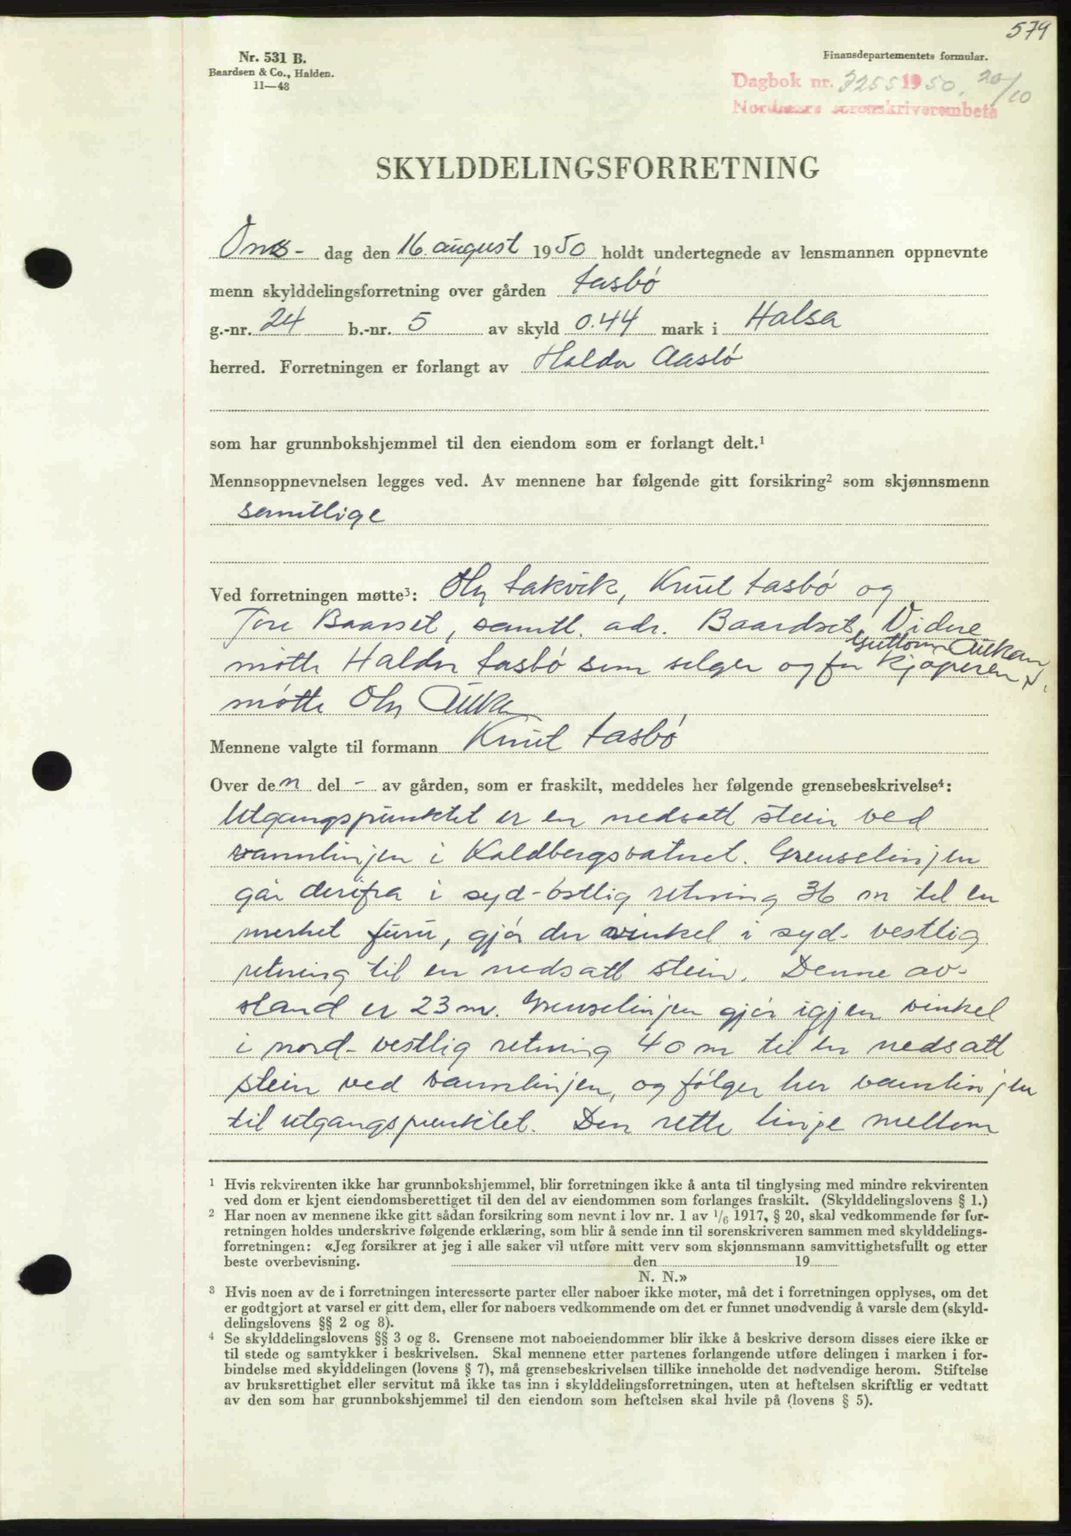 579
Nr. 531 B.
Baardsen & Co., Halden.
11—48
Finansdepartementets formular.
Dagbok nr. 3255 1950. 20/10
Nordmøre sorenskriverembete
SKYLDDELINGSFORRETNING
Ons- dag den 16. august 1950 holdt undertegnede av lensmannen oppnevnte
menn skylddelingsforretning over gården Aasbø
g.-nr. 24 b.-nr. 5 av skyld 0.44 mark i Halsa
herred. Forretningen er forlangt av Haldor Aasbø
som har grunnbokshjemmel til den eiendom som er forlangt delt.¹
Mennsoppnevnelsen legges ved. Av mennene har følgende gitt forsikring² som skjønnsmenn
samtlige
Ved forretningen møtte³: Ole Aakvik, Knut Aasbø og
Tore Baarset, samtl. adr. Baardset. Videre
møtte Haldor Aasbø som selger og for kjøperen Guttorm Aukan
møtte Ole Aukan
Mennene valgte til formann Knut Aasbø
Over den del - av gården, som er fraskilt, meddeles her følgende grensebeskrivelse⁴:
Utgangspunktet er en nedsatt stein ved
vannlinjen i Kaldbergsvatnet. Grenselinjen
går derifra i syd-østlig retning 36 m til en
merket furu, gjør der vinkel i syd-vestlig
retning til en nedsatt stein. Denne av-
stand er 23 m. Grenselinjen gjør igjen vinkel
i nord-vestlig retning 40 m til en nedsatt
stein ved vannlinjen, og følger her vannlinjen
til utgangspunktet. Den rette linje mellom
¹ Hvis rekvirenten ikke har grunnbokshjemmel, blir forretningen ikke å anta til tinglysing med mindre rekvirenten
ved dom er kjent eiendomsberettiget til den del av eiendommen som forlanges fraskilt. (Skylddelingslovens § 1.)
² Har noen av mennene ikke gitt sådan forsikring som nevnt i lov nr. 1 av ¹/₆ 1917, § 20, skal vedkommende før for-
retningen holdes underskrive følgende erklæring, som blir å sende inn til sorenskriveren sammen med skylddelings-
forretningen: «Jeg forsikrer at jeg i alle saker vil utføre mitt verv som skjønnsmann samvittighetsfullt og etter
beste overbevisning. den 19
N. N.»
³ Hvis noen av de i forretningen interesserte parter eller naboer ikke møter, må det i forretningen opplyses, om det
er godtgjort at varsel er gitt dem, eller for naboers vedkommende om det er funnet unødvendig å varsle dem (skyld-
delingslovens §§ 2 og 8).
⁴ Se skylddelingslovens §§ 3 og 8. Grensene mot naboeiendommer blir ikke å beskrive dersom disses eiere ikke er
til stede og samtykker i beskrivelsen. Skal mennene etter partenes forlangende utføre delingen i marken i for-
bindelse med skylddelingen (lovens § 7), må grensebeskrivelsen tillike inneholde det nødvendige herom. Stiftelse
av bruksrettighet eller servitut må ikke tas inn i skylddelingsforretningen, uten at heftelsen skriftlig er vedtatt
av den som har grunnbokshjemmel til den eiendom som heftelsen skal hvile på (lovens § 5).